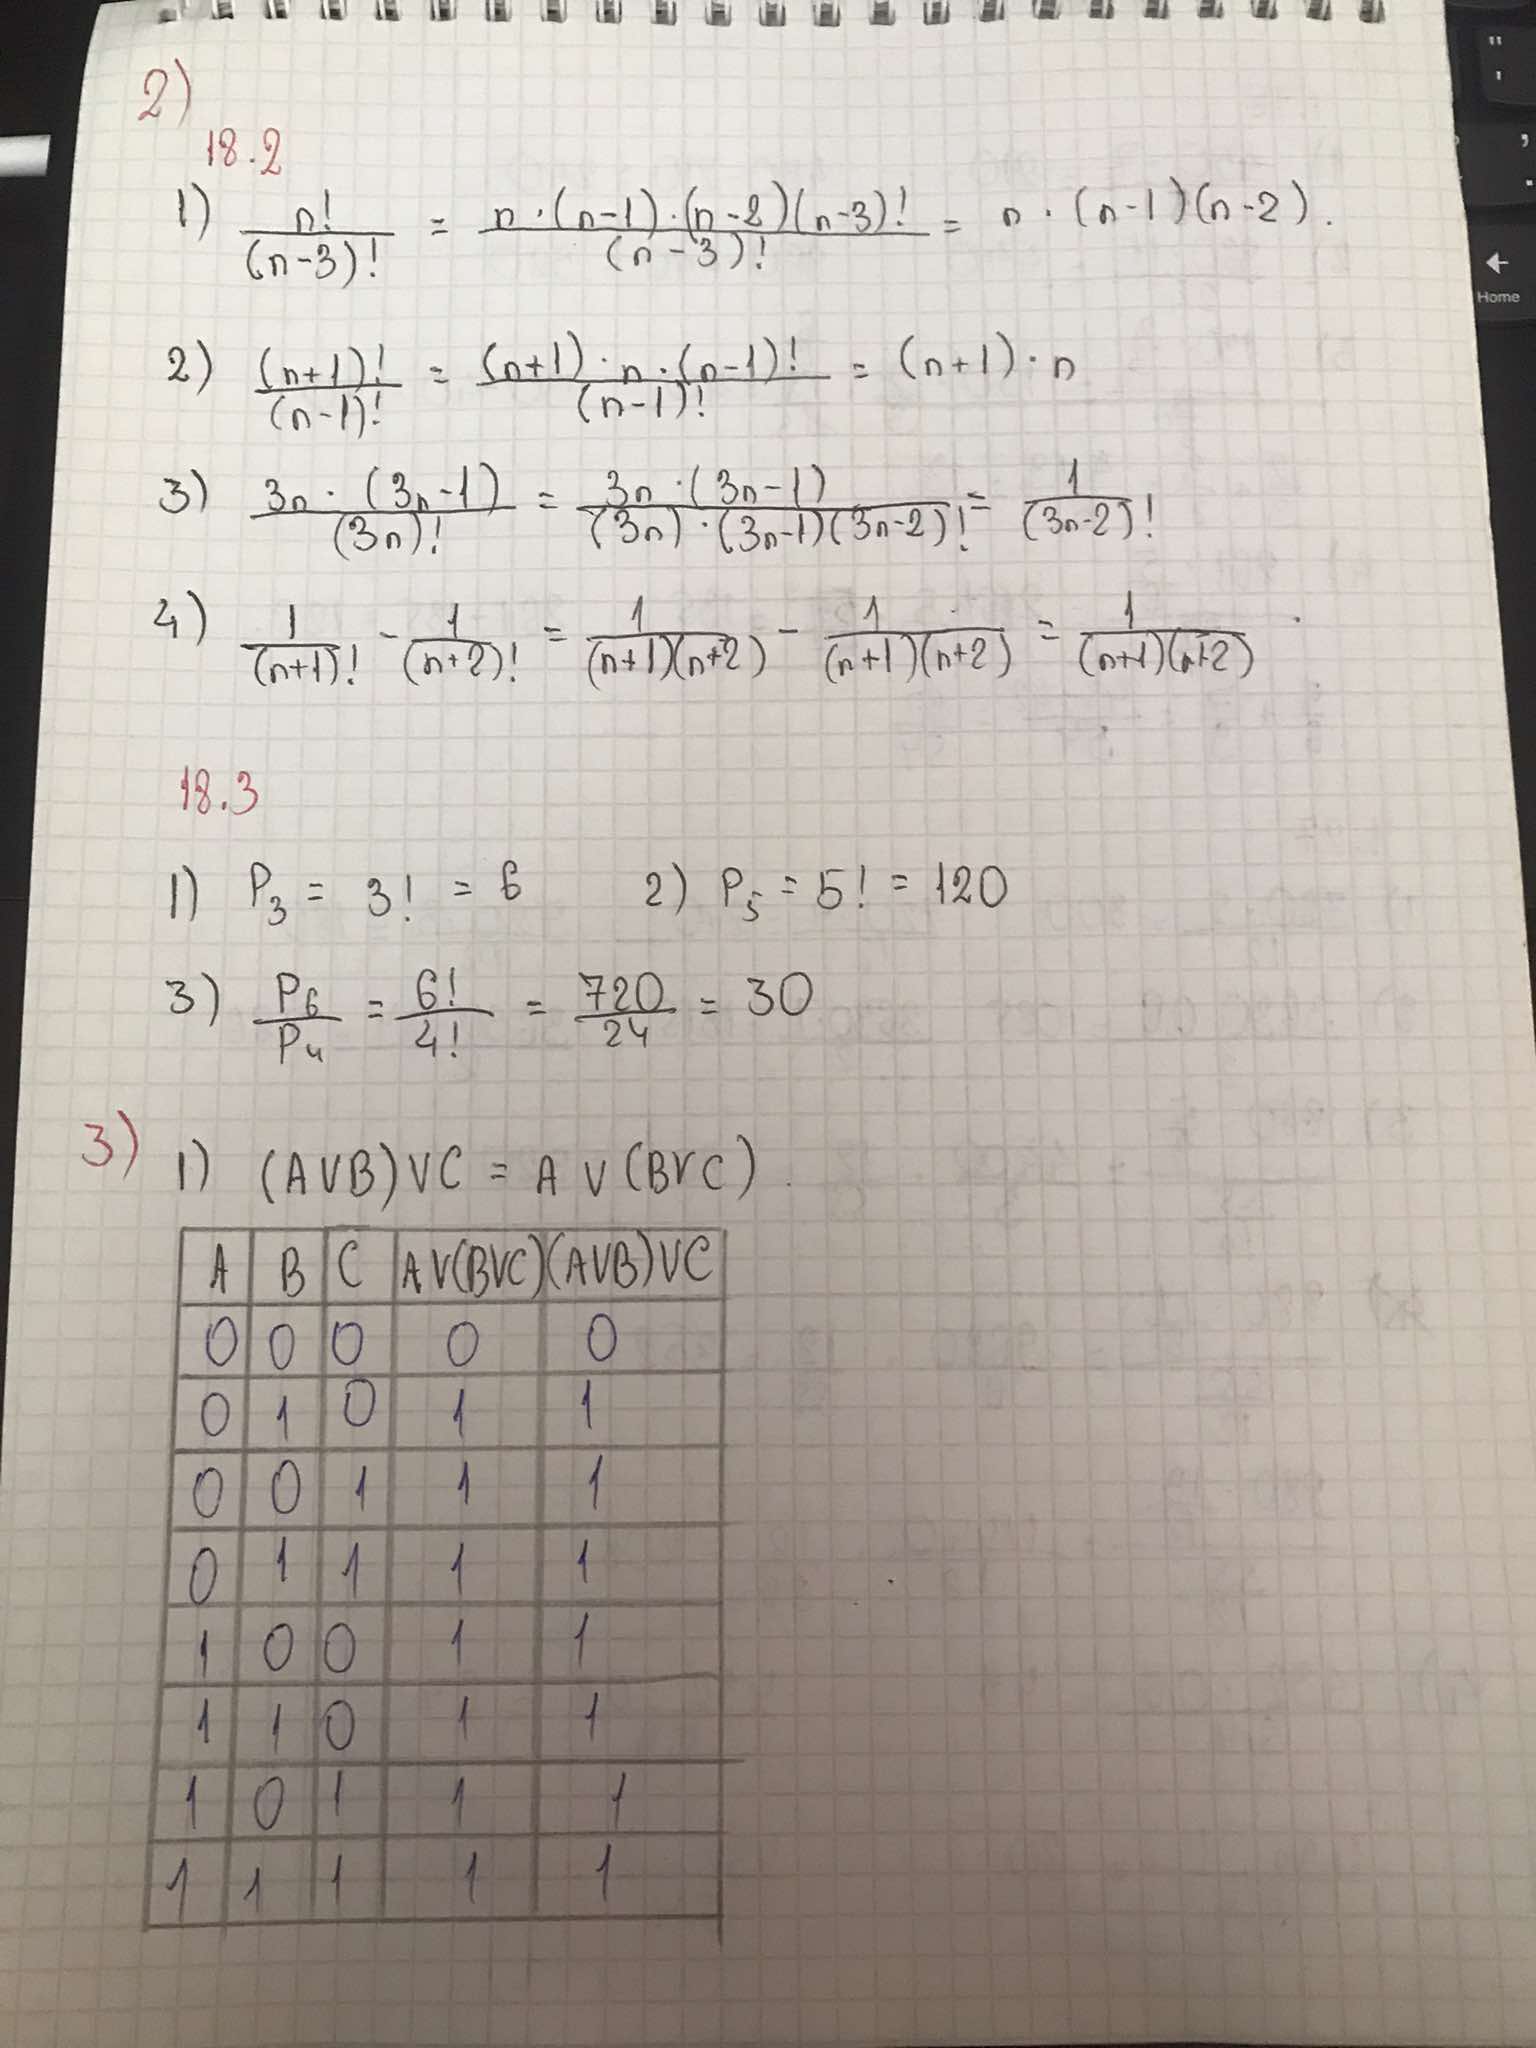 2)
18.2
1) n!/(n-3)! = n·(n-1)·(n-2)(n-3)!/(n-3)! = n·(n-1)(n-2).
2) (n+1)!/(n-1)! = (n+1)·n·(n-1)!/(n-1)! = (n+1)·n
3) 3n·(3n-1)/(3n)! = 3n·(3n-1)/(3n)·(3n-1)(3n-2)! = 1/(3n-2)!
4) 1/(n+1)! - 1/(n+2)! = 1/(n+1)(n+2) - 1/(n+1)(n+2) = 1/(n+1)(n+2)
18.3
1) P₃ = 3! = 6 2) P₅ = 5! = 120
3) P₆/P₄ = 6!/4! = 720/24 = 30
3) 1) (A∨B)∨C = A∨(B∨C).
A B C A∨(B∨C) (A∨B)∨C
0 0 0 0 0
0 1 0 1 1
0 0 1 1 1
0 1 1 1 1
1 0 0 1 1
1 1 0 1 1
1 0 1 1 1
1 1 1 1 1
"
'
←
Home